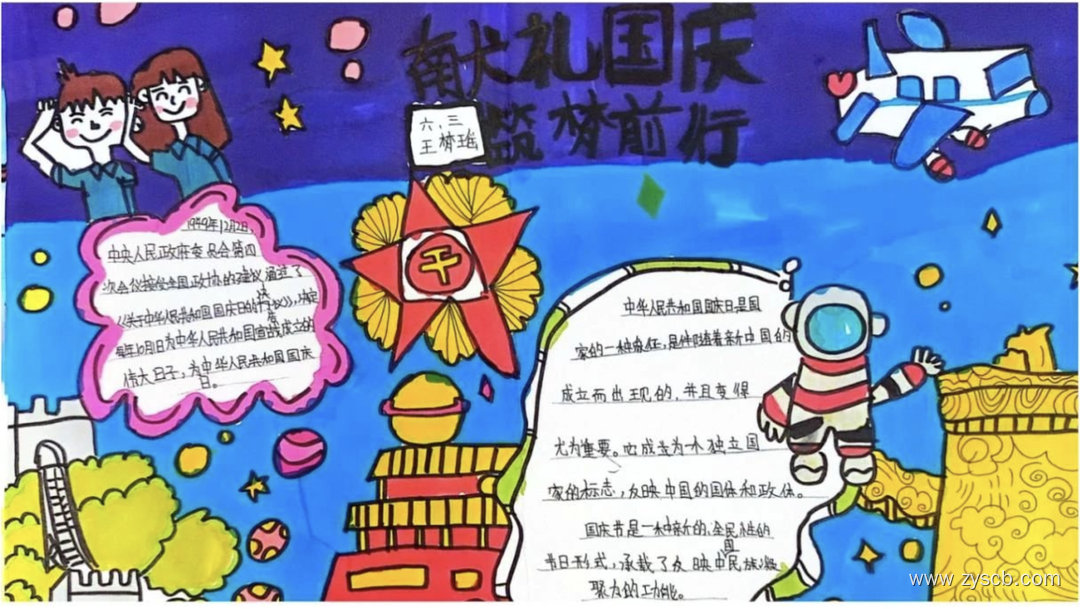 献礼国庆
筑梦前行
六、三
王梦瑶
1949年12月2日,
中央人民政府委员会第四
次会议接受全国政协的建议通过了
《关于中华人民共和国国庆日的决议》,决定
每年10月1日为中华人民共和国宣告成立的
伟大日子,为中华人民共和国国庆
日。
中华人民共和国国庆日是国
家的一种象征,是伴随着新中国的
成立而出现的,并且变得
尤为重要。它成为一个独立国
家的标志,反映中国的国体和政体。
国庆节是一种新的、全民性的
节日形式,承载了反映中国民族凝
聚力的功能。
www.zyscb.com